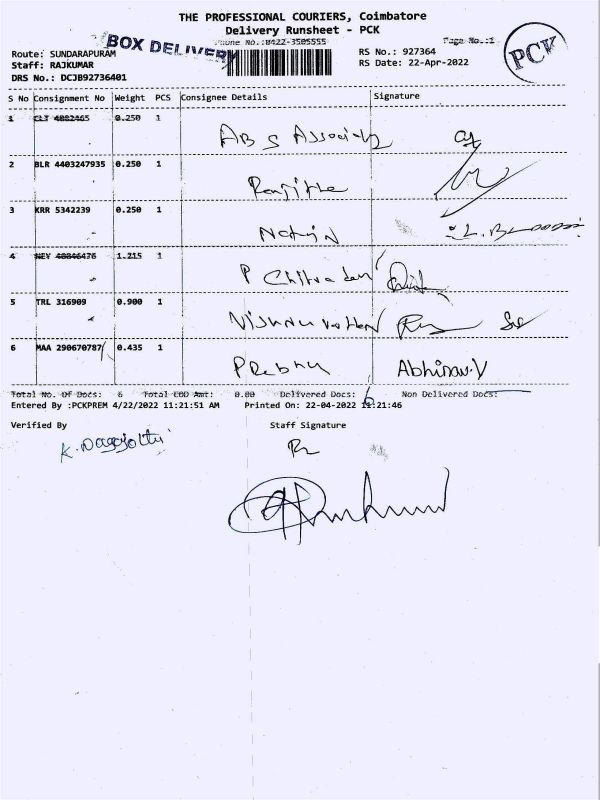 THE PROFESSIONAL COURIERS, Coimbatore
Delivery Runsheet - PCK
BOX DELIVERY
Phone No.:0422-3505555
Page No.:1
PCK
Route: SUNDARAPURAM
Staff: RAJKUMAR
DRS No.: DCJB92736401
RS No.: 927364
RS Date: 22-Apr-2022
S No Consignment No Weight PCS Consignee Details Signature
1 CLT 4882465 0.250 1
2 BLR 4403247935 0.250 1
Ranjitha
3 KRR 5342239 0.250 1
4 NEY 40846476 1.215 1
5 TRL 316909 0.900 1
6 MAA 290670787 0.435 1
Prabhu Abhinav.V
Total No. Of Docs: 6 Total COD Amt: 0.00 Delivered Docs: 6 Non Delivered Docs:
Entered By :PCKPREM 4/22/2022 11:21:51 AM Printed On: 22-04-2022 11:21:46
Verified By Staff Signature